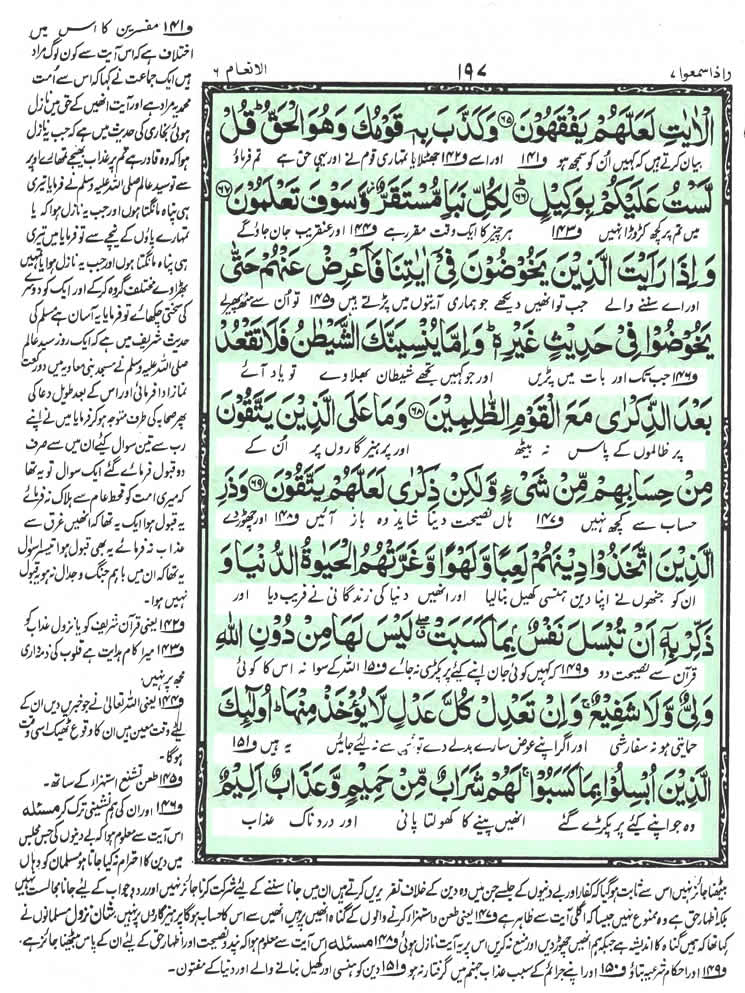 واذاسمعوا ۷
۱۹۷
الانعام ۶
الْاٰیٰتِ لَعَلَّهُمْ یَفْقَهُوْنَ ﴿۶۵﴾ وَكَذَّبَ بِهٖ قَوْمُكَ وَهُوَ الْحَقُّ ؕ قُلْ
بیان کرتے ہیں کہ کہیں ان کو سمجھ ہو و۱۴۱ اور اسے و۱۴۲ جھٹلایا تمہاری قوم نے اور یہی حق ہے تم فرماؤ
لَّسْتُ عَلَیْكُمْ بِوَكِیْلٍ ﴿۶۶﴾ لِكُلِّ نَبَاٍ مُّسْتَقَرٌّ ؗ وَّسَوْفَ تَعْلَمُوْنَ ﴿۶۷﴾
میں تم پر کچھ کڑوڑا نہیں و۱۴۳ ہر چیز کا ایک وقت مقرر ہے و۱۴۴ اور عنقریب جان جاؤ گے
وَاِذَا رَاَیْتَ الَّذِیْنَ یَخُوْضُوْنَ فِیْۤ اٰیٰتِنَا فَاَعْرِضْ عَنْهُمْ حَتّٰی
اور اے سننے والے جب تو انھیں دیکھے جو ہماری آیتوں میں پڑتے ہیں و۱۴۵ تو ان سے منہ پھیر لے
یَخُوْضُوْا فِیْ حَدِیْثٍ غَیْرِهٖ ؕ وَاِمَّا یُنْسِیَنَّكَ الشَّیْطٰنُ فَلَا تَقْعُدْ
و۱۴۶ جب تک اور بات میں پڑیں اور جو کہیں تجھے شیطان بھلا دے تو یاد آئے
بَعْدَ الذِّكْرٰی مَعَ الْقَوْمِ الظّٰلِمِیْنَ ﴿۶۸﴾ وَمَا عَلَی الَّذِیْنَ یَتَّقُوْنَ
پر ظالموں کے پاس نہ بیٹھ اور پرہیز گاروں پر ان کے
مِنْ حِسَابِهِمْ مِّنْ شَیْءٍ وَّلٰكِنْ ذِكْرٰی لَعَلَّهُمْ یَتَّقُوْنَ ﴿۶۹﴾ وَذَرِ
حساب سے کچھ نہیں و۱۴۷ ہاں نصیحت دینا شاید وہ باز آئیں و۱۴۸ اور چھوڑ دے
الَّذِیْنَ اتَّخَذُوْا دِیْنَهُمْ لَعِبًا وَّلَهْوًا وَّغَرَّتْهُمُ الْحَیٰوةُ الدُّنْیَا وَ
ان کو جنھوں نے اپنا دین ہنسی کھیل بنا لیا اور انھیں دنیا کی زندگانی نے فریب دیا اور
ذَكِّرْ بِهٖۤ اَنْ تُبْسَلَ نَفْسٌۢ بِمَا كَسَبَتْ ۖۗ لَیْسَ لَهَا مِنْ دُوْنِ اللّٰهِ
قرآن سے نصیحت دو و۱۴۹ کہ کہیں کوئی جان اپنے کیئے پر پکڑی نہ جائے و۱۵۰ اللہ کے سوا نہ اس کا کوئی
وَلِیٌّ وَّلَا شَفِیْعٌ ۚ وَاِنْ تَعْدِلْ كُلَّ عَدْلٍ لَّا یُؤْخَذْ مِنْهَا ؕ اُولٰٓئِكَ
حمایتی ہو نہ سفارشی اور اگر اپنے عوض سارے بدلے دے تو اس سے نہ لیئے جائیں یہ ہیں و۱۵۱
الَّذِیْنَ اُبْسِلُوْا بِمَا كَسَبُوْا ۚ لَهُمْ شَرَابٌ مِّنْ حَمِیْمٍ وَّعَذَابٌ اَلِیْمٌۢ
وہ جو اپنے کیئے پر پکڑے گئے انھیں پینے کا کھولتا پانی اور دردناک عذاب
و۱۴۱ مفسرین کا اس میں
اختلاف ہے کہ اس آیت سے کون لوگ مراد
ہیں ایک جماعت نے کہا کہ اس سے امت
محمدیہ مراد ہے اور آیت انھیں کے حق میں نازل
ہوئی بخاری کی حدیث میں ہے کہ جب یہ نازل
ہوا کہ وہ قادر ہے تم پر عذاب بھیجے تمھارے اوپر
سے تو سید عالم صلی اللہ علیہ وسلم نے فرمایا تیری
ہی پناہ مانگتا ہوں اور جب یہ نازل ہوا کہ یا
تمہارے پاؤں کے نیچے سے تو فرمایا میں تیری
ہی پناہ مانگتا ہوں اور جب یہ نازل ہوا یا تمہیں
بھڑا دے مختلف گروہ کر کے اور ایک کو دوسرے
کی سختی چکھائے تو فرمایا یہ آسان ہے مسلم کی
حدیث شریف میں ہے کہ ایک روز سید عالم
صلی اللہ علیہ وسلم نے مسجد بنی معاویہ میں دو رکعت
نماز ادا فرمائی اور اس کے بعد طویل دعا کی
پھر صحابہ کی طرف متوجہ ہو کر فرمایا میں نے اپنے
رب سے تین سوال کیئے ان میں سے صرف
دو قبول فرمائے گئے ایک سوال تو یہ تھا
کہ میری امت کو قحط عام سے ہلاک نہ فرمائے
یہ قبول ہوا ایک یہ تھا کہ انھیں غرق سے
عذاب نہ فرمائے یہ بھی قبول ہوا تیسرا سوال
یہ تھا کہ ان میں باہم جنگ و جدال نہ ہو یہ قبول
نہیں ہوا۔
و۱۴۲ یعنی قرآن شریف کو یا نزول عذاب کو
و۱۴۳ میرا کام ہدایت ہے قلوب کی ذمہ داری
مجھ پر نہیں۔
و۱۴۴ یعنی اللہ تعالیٰ نے جو خبریں دیں ان کے
لیئے وقت معین ہیں ان کا وقوع ٹھیک اسی وقت
ہوگا۔
و۱۴۵ طعن تشنیع استہزاء کے ساتھ۔
و۱۴۶ اور ان کی ہم نشینی ترک کر مسئلہ
اس آیت سے معلوم ہوا کہ بے دینوں کی جس مجلس
میں دین کا احترام نہ کیا جاتا ہو مسلمان کو وہاں
بیٹھنا جائز نہیں اس سے ثابت ہو گیا کہ کفار اور بے دینوں کے جلسے جن میں وہ دین کے خلاف تقریریں کرتے ہیں ان میں جانا سننے کے لیئے شرکت کرنا جائز نہیں اور رد و جواب کے لیے جانا مجالست نہیں
بلکہ اظہار حق ہے وہ ممنوع نہیں جیسا کہ اگلی آیت سے ظاہر ہے و۱۴۷ یعنی طعن و استہزاء کرنے والوں کے گناہ انھیں پر ہیں انھیں سے اس کا حساب ہوگا پرہیز گاروں پر نہیں شان نزول مسلمانوں نے
کہا تھا کہ ہمیں گناہ کا اندیشہ ہے جبکہ ہم انھیں چھوڑ دیں اور منع نہ کریں اس پر یہ آیت نازل ہوئی و۱۴۸ مسئلہ اس آیت سے معلوم ہوا کہ پند و نصیحت اور اظہار حق کے لیئے ان کے پاس بیٹھنا جائز ہے۔
و۱۴۹ اور احکام شرعیہ بتاؤ و۱۵۰ اور اپنے جرائم کے سبب عذاب جہنم میں گرفتار نہ ہو و۱۵۱ دین کو ہنسی اور کھیل بنانے والے اور دنیا کے مفتون۔